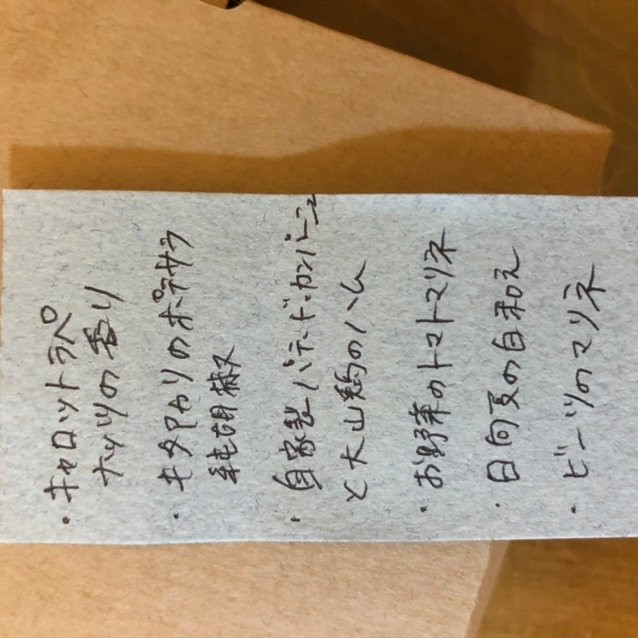 ・キャロットラペ
ナッツの香り
・キタアカリのポテサラ
純胡椒
・自家製パテ・ド・カンパーニュ
と大山鶏のハム
・お野菜のトマトマリネ
・日向夏の白和え
・ビーツのマリネ